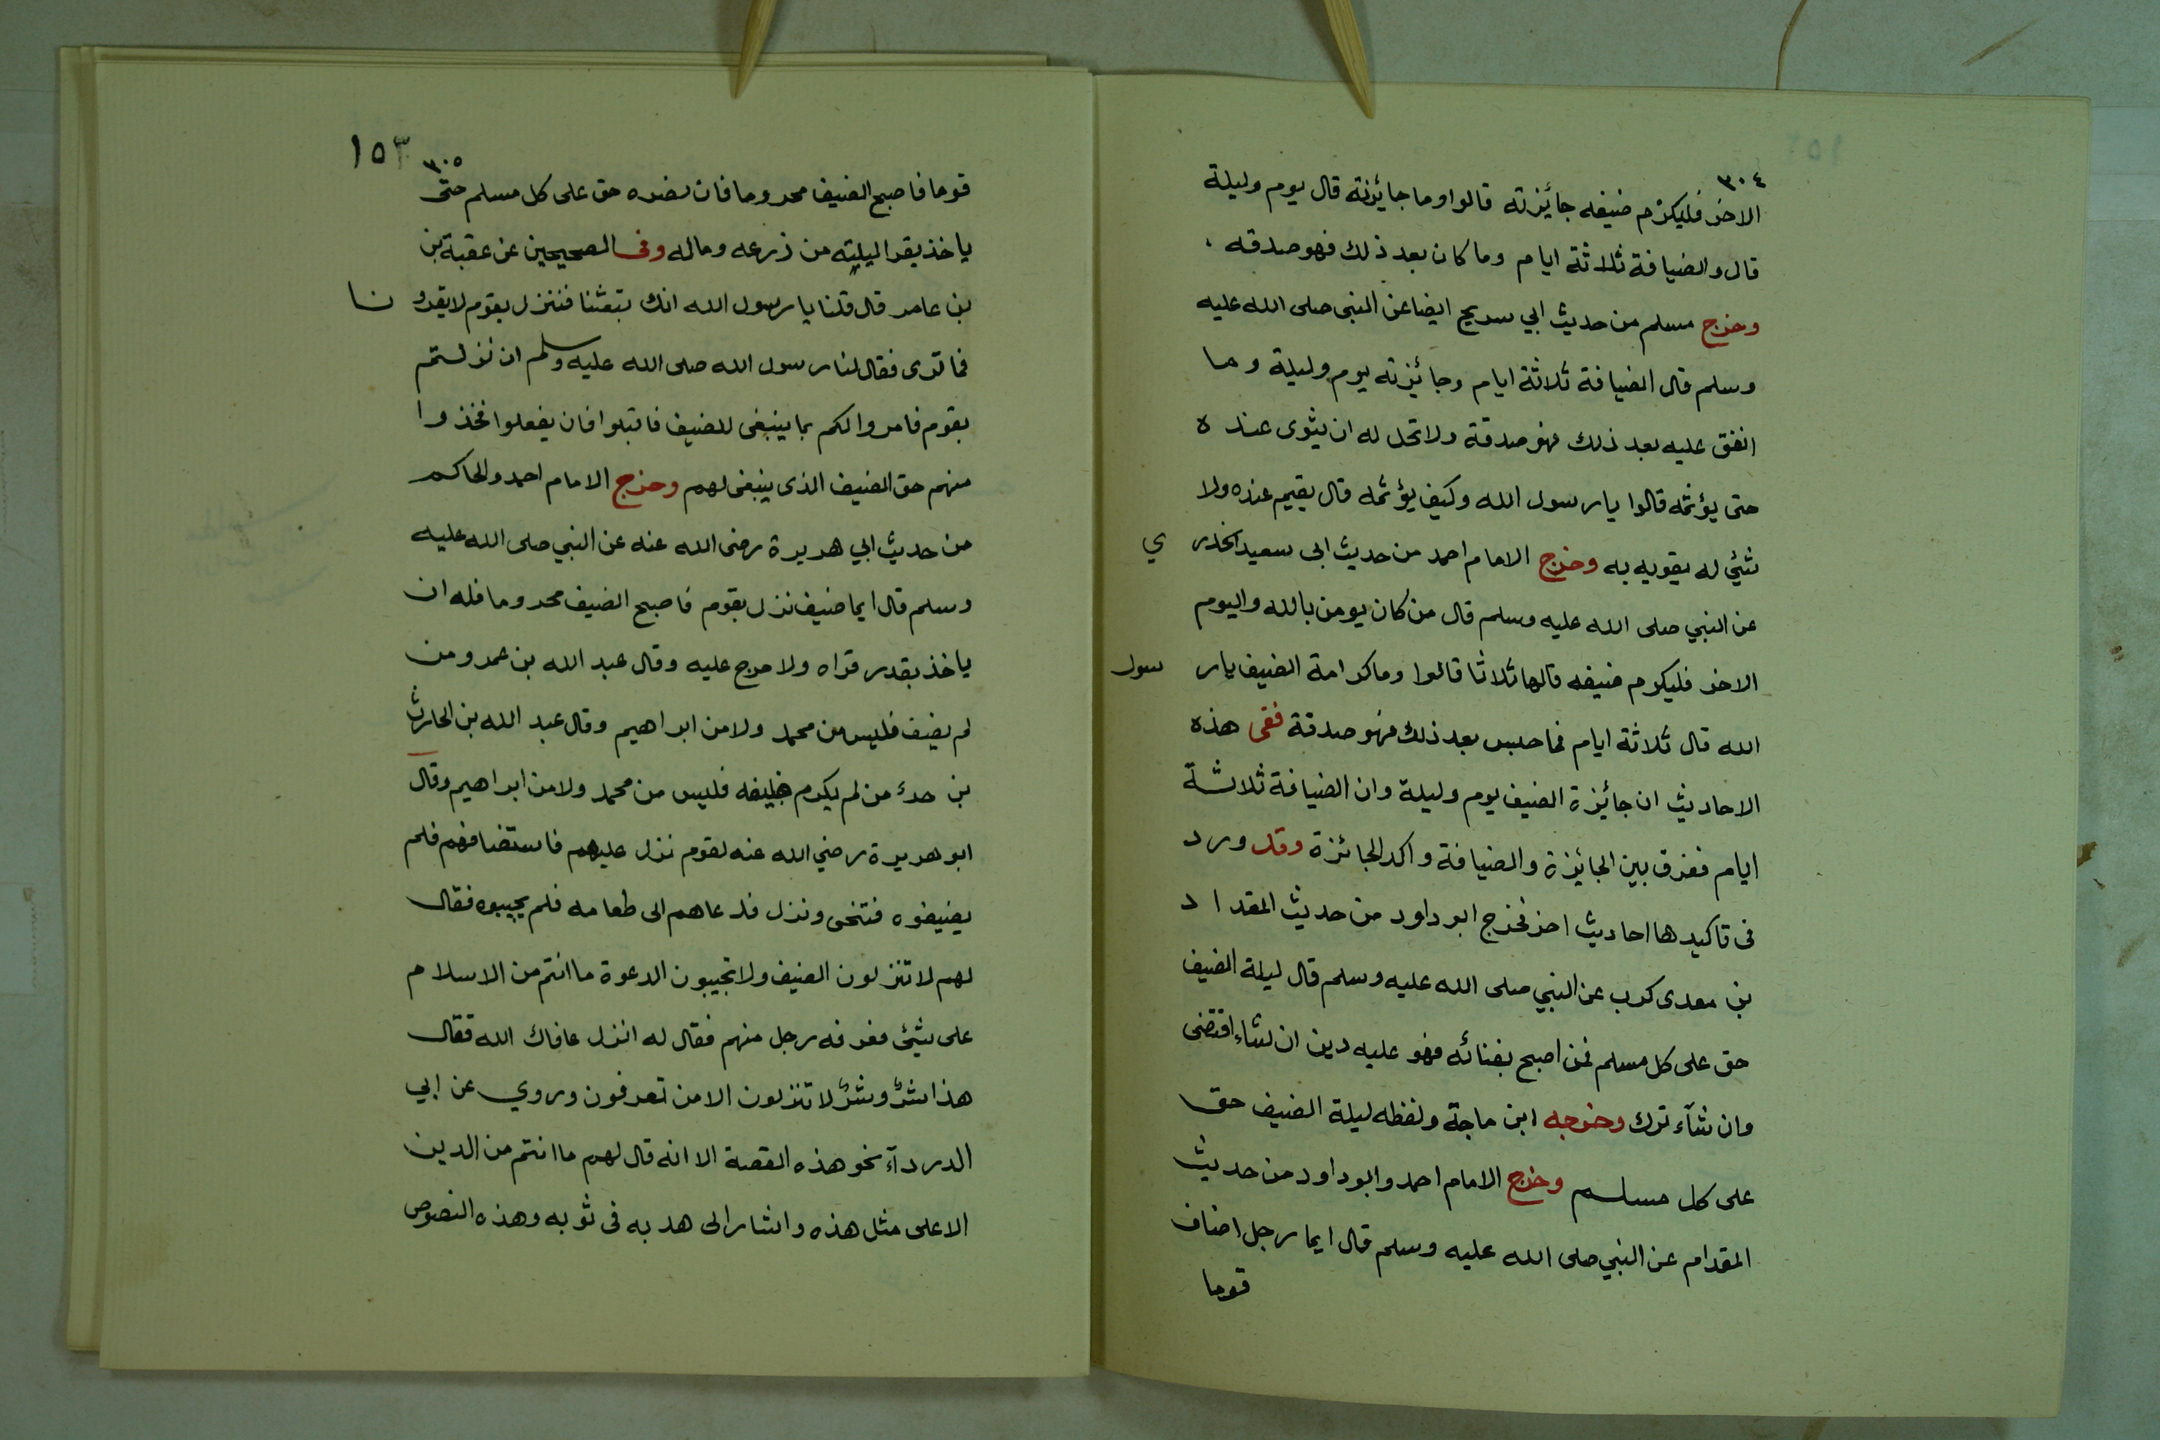 ٣٠٤
الاخر فليكرم ضيفه جائزته قالوا وما جايزته قال يوم وليلة
قال والضيافة ثلاثة ايام وما كان بعد ذلك فهو صدقه ،
وخرج مسلم من حديث ابي سريح ايضا عن النبى صلى الله عليه
وسلم قال الضيافة ثلاثة ايام وجائزته يوم وليلة وما
انفق عليه بعد ذلك فهو صدقة ولا تحل له ان يثوى عنده
حتى يؤثمه قالوا يا رسول الله وكيف يؤثمه قال يقيم عنده ولا
شئ له يقويه به وخرج الامام احمد من حديث ابى سعيد الخدري
عن النبي صلى الله عليه وسلم قال من كان يومن بالله واليوم
الاخر فليكرم ضيفه قالها ثلاثا قالوا وما كرامة الضيف يا رسول
الله قال ثلاثة ايام فما حبس بعد ذلك فهو صدقة ففى هذه
الاحاديث ان جائزة الضيف يوم وليلة وان الضيافة ثلاثة
ايام ففرق بين الجايزة والضيافة واكد الجائزة وقد ورد
فى تاكيدها احاديث اخر فخرج ابو داود من حديث المقداد
بن معدى كرب عن النبي صلى الله عليه وسلم قال ليلة الضيف
حق على كل مسلم فمن اصبح بفنائه فهو عليه دين ان شاء اقتضى
وان شآء ترك وخرجه ابن ماجة ولفظه ليلة الضيف حق
على كل مسلم وخرج الامام احمد وابو داود من حديث
المقدام عن النبي صلى الله عليه وسلم قال ايما رجل اضاف
قوما
١٥٣
٣٠٥
قوما فاصبح الضيف محروما فان نصره حق على كل مسلم حتى
ياخذ بقرا ليلته من زرعه وماله وفى الصحيحين عن عقبة بن
بن عامر قال قلنا يا رسول الله انك تبعثنا فننزل بقوم لا يقدونا
فما ترى فقال لنا رسول الله صلى الله عليه وسلم ان نزلتم
بقوم فامروا لكم بما ينبغى للضيف فاقبلوا فان يفعلوا فخذوا
منهم حق الضيف الذى ينبغى لهم وخرج الامام احمد والحاكم
من حديث ابي هريرة رضى الله عنه عن النبي صلى الله عليه
وسلم قال ايما ضيف نزل بقوم فاصبح الضيف محروما فله ان
ياخذ بقدر قراه ولا حرج عليه وقال عبد الله بن عمرو من
لم يضيف فليس من محمد ولا من ابراهيم وقال عبد الله بن الحارث
بن حدء من لم يكرم ضيفه فليس من محمد ولا من ابراهيم وقال
ابو هريرة رضي الله عنه لقوم نزل عليهم فاستضافهم فلم
يضيفوه فتنحى ونزل فدعاهم الى طعامه فلم يجيبوه فقال
لهم لا تنزلون الضيف ولا تجيبون الدعوة ما انتم من الاسلام
على شئ فعرفه رجل منهم فقال له انزل عافاك الله فقال
هذا شرٌ وشرٌ لا تنزلون الا من تعرفون وروي عن ابي
الدردآء نحو هذه القصة الا انه قال لهم ما انتم من الدين
الا على مثل هذه واشار الى هدبه فى ثوبه وهذه النصوص